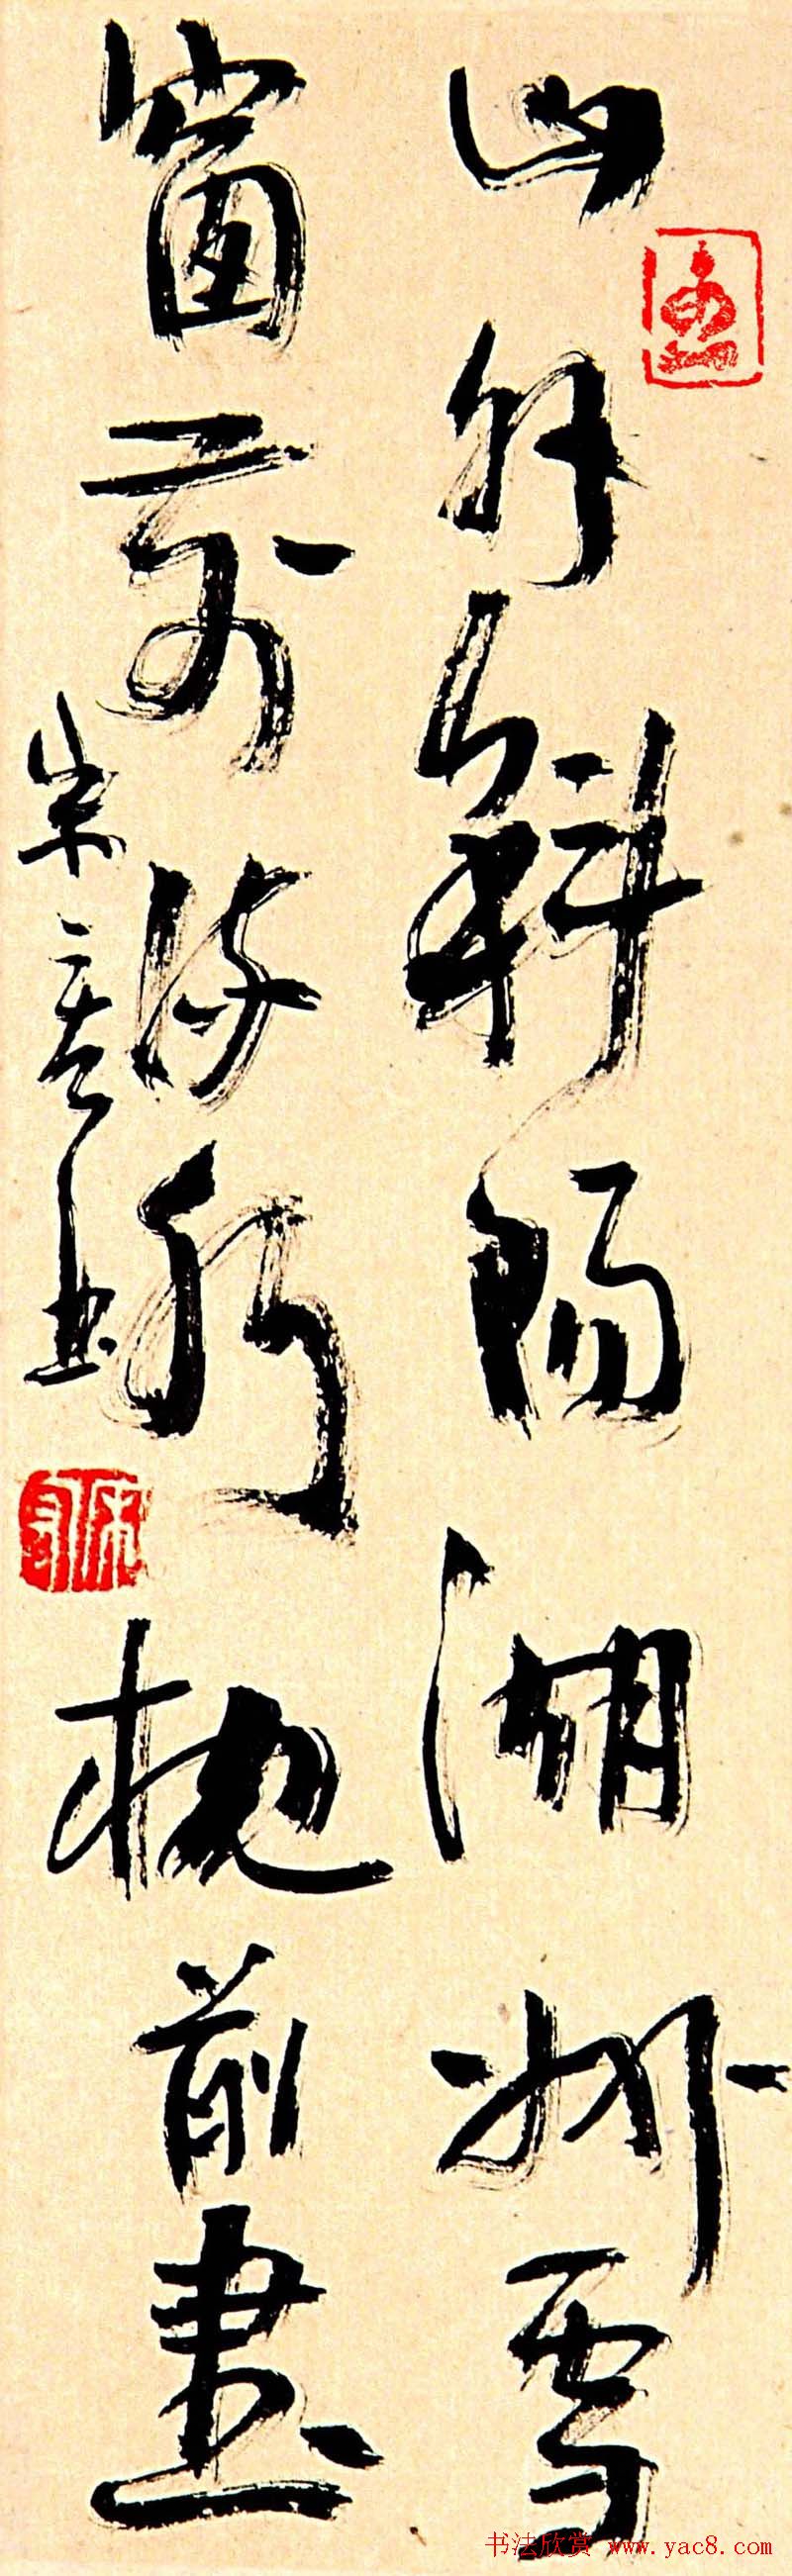 山外斜陽湖外雪
窗前流水枕前書
书法欣赏 www.yac8.com